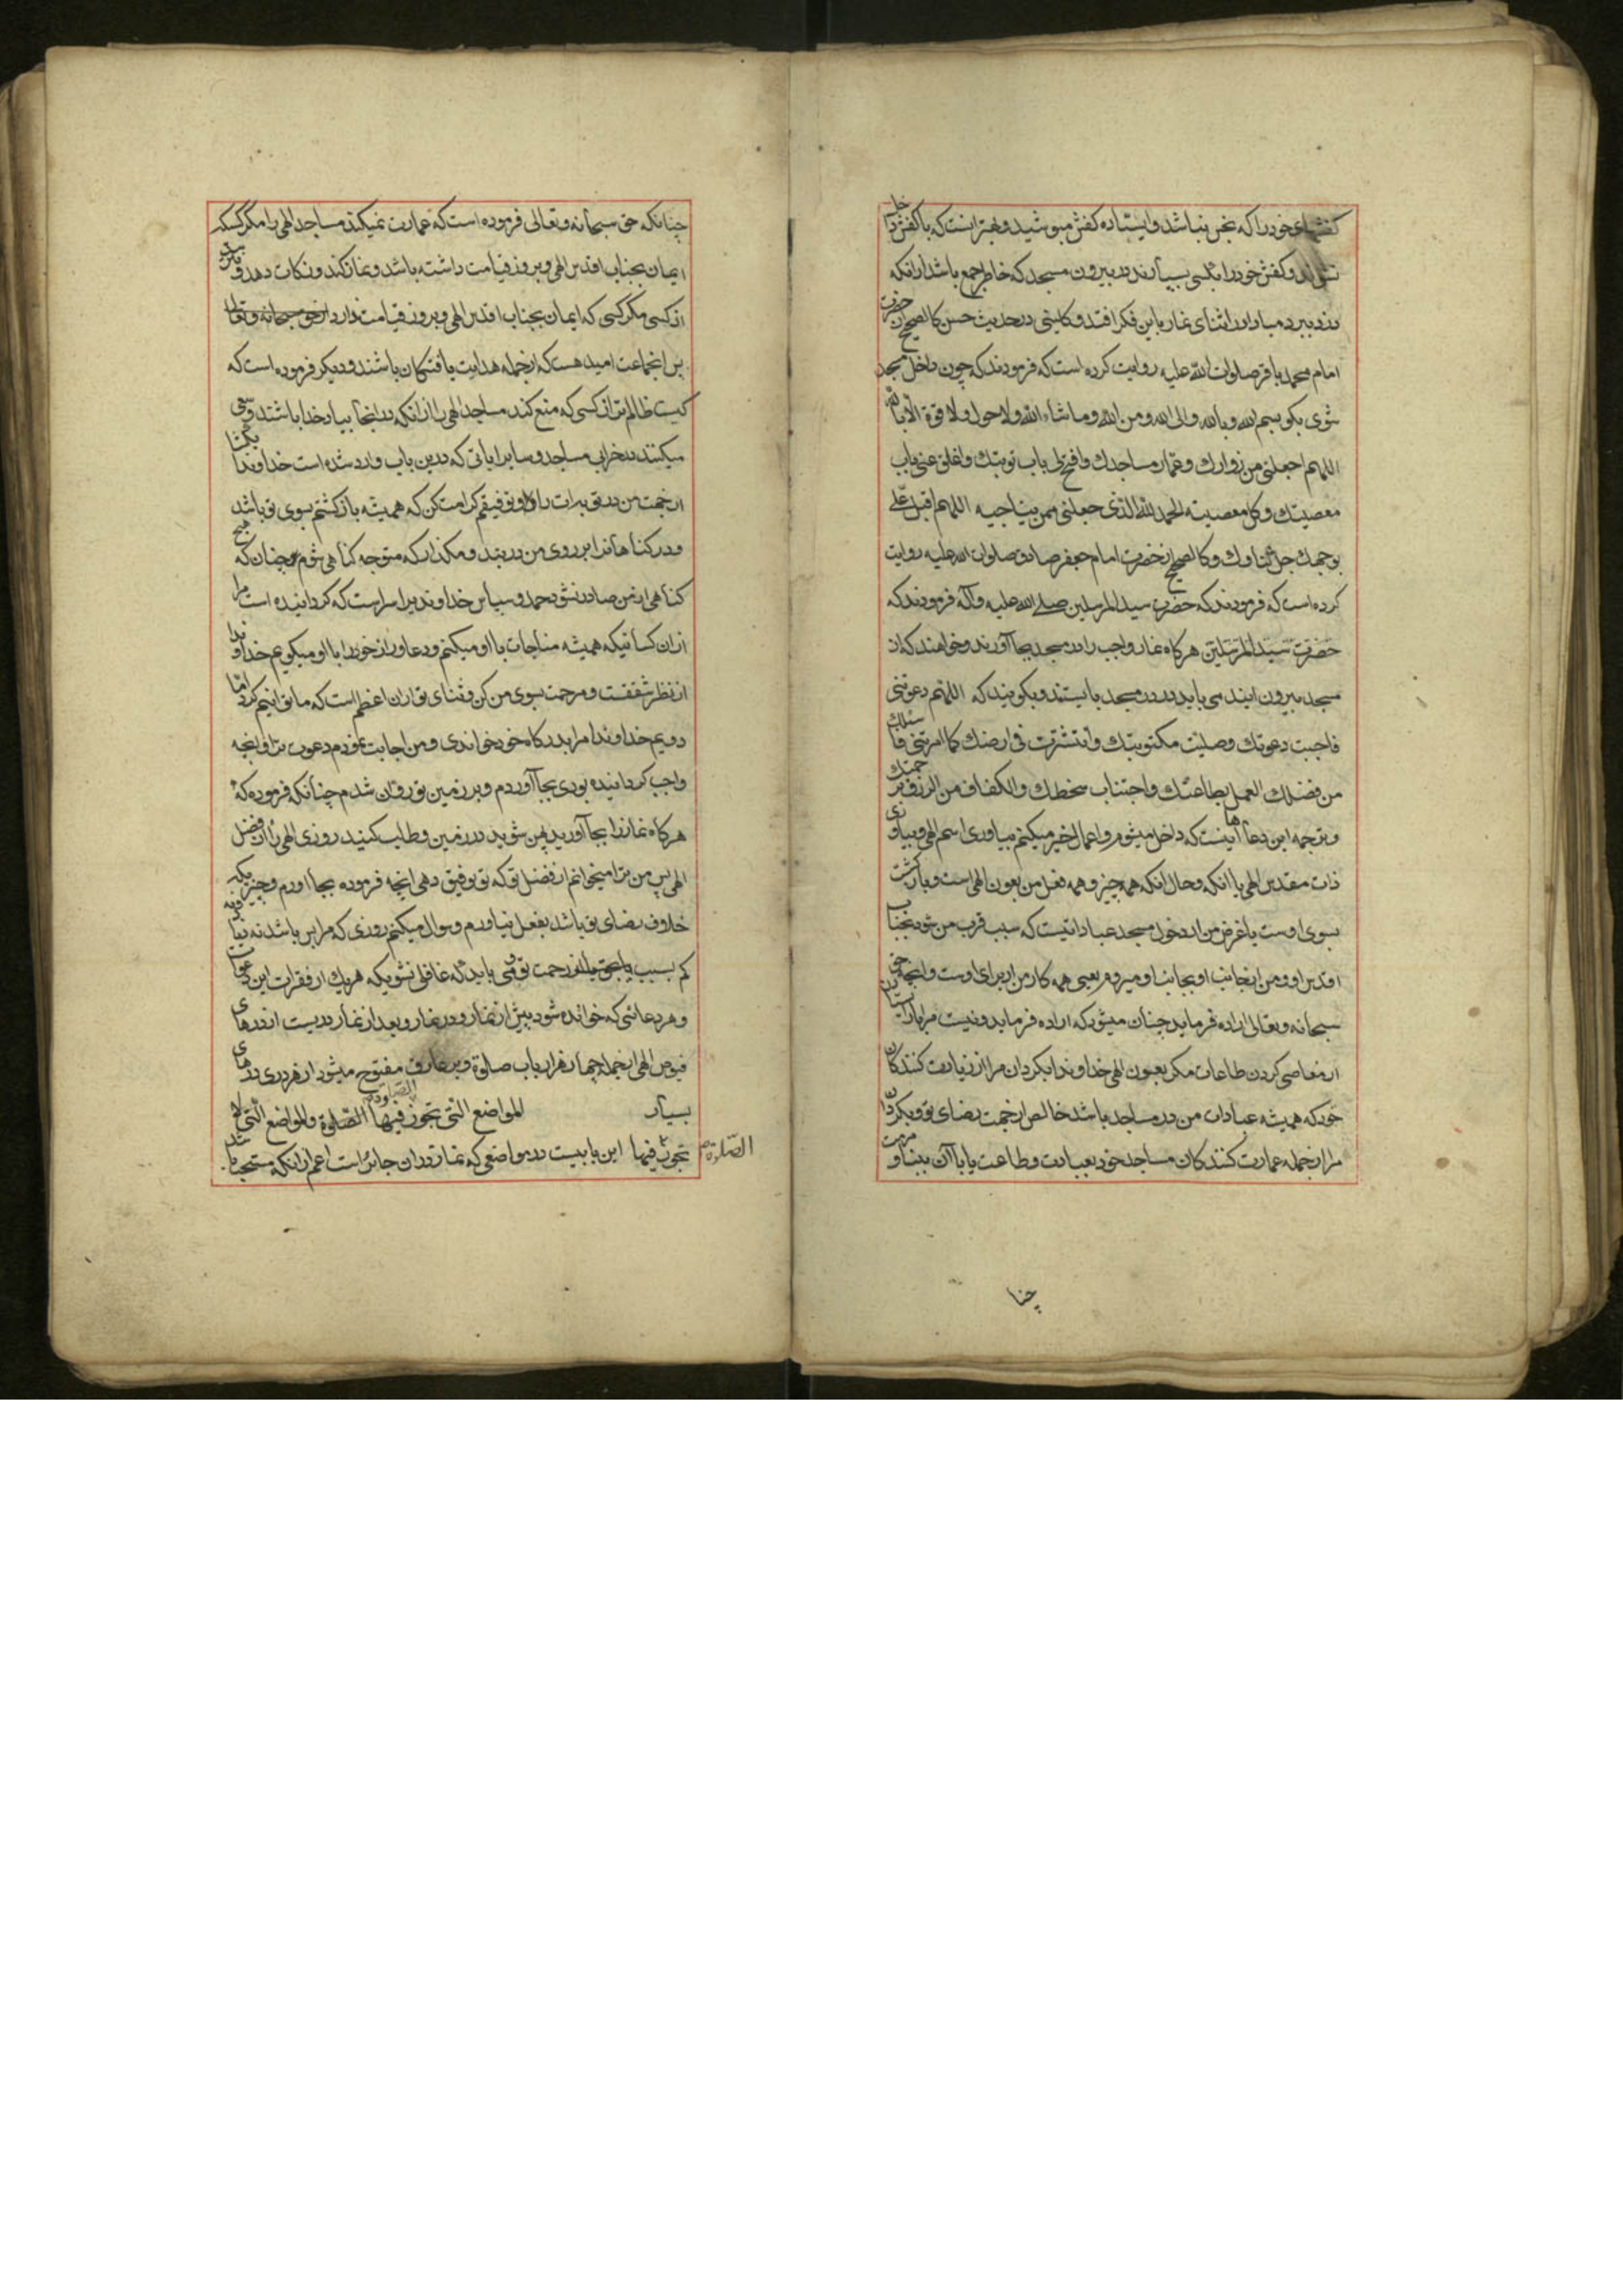 کفشهای خود را که نجس نباشد و ایستاده کفش مپوشید و بهتر انست که با کفش داخل
نشوند و کفش خود را بکسی بسپارند در بیرون مسجد که خاطر جمع باشد از انکه
دزد ببرد مبادا در اثنای نماز باین فکر افتد و کلینی در حدیث حسن کالصحیح از حضرت
امام محمد باقر صلوات الله علیه روایت کرده است که فرمودند که چون داخل مسجد
شوی بکو بسم الله و بالله و الی الله و من الله و ما شاء الله و لا حول و لا قوة الا بالله
اللهم اجعلنی من زوارك و عمار مساجدك و افتح لی باب توبتك و اغلق عنی باب
معصیتك و کل معصیته الحمد لله الذی جعلنی ممن یناجیه اللهم اقبل علی
بوجهك جل ثناوك و کالصحیح از حضرت امام جعفر صادق صلوات الله علیه روایت
کرده است که فرمودند که حضرت سید المرسلین صلی الله علیه و آله فرمودند که
حضرت سید المرسلین هرکاه نماز واجب را در مسجد بجا آورند و خواهند که از
مسجد بیرون ایند می باید در در مسجد بایستند و بکویند که اللهم دعوتنی
فاجبت دعوتك و صلیت مکتوبتك و انتشرت فی ارضك کما امرتنی فاسئلك
من فضلك العمل بطاعتك و اجتناب سخطك و الکفاف من الرزق برحمتك
و ترجمه این دعاها اینست که داخل میشوم و اعمال خیر میکنم بیاوری اسم الهی و بیاوری
ذات مقدس الهی با انکه و حال انکه همه چیز و همه فعل من بعون الهی است و بازکشت
بسوی اوست یا غرض من از دخول مسجد عباداتیست که سبب قرب من شود بجناب
اقدس او و من از جانب او بجانب او میروم یعنی همه کار من از برای اوست و انچه حق
سبحانه و تعالی اراده فرماید چنان میشود که اراده فرماید و نیست مرا باز ایستادن
از معاصی کردن طاعات مکر بعون الهی خداوندا بکردان مرا از زیارت کنندکان
خود که همیشه عبادات من در مساجد باشد خالص از جهت رضای تو و بکردان
مرا از جمله عمارت کنندکان مساجد خود بعبادت و طاعت یا باآن بینا و مرمت
چنا
چنانکه حق سبحانه و تعالی فرموده است که عمارت نمیکند مساجد الهی را مکر کسیکه
ایمان بجناب اقدس الهی و بروز قیامت داشته باشد و نماز کند و زکات دهد و نترسد
از کسی مکر کسی که ایمان بجناب اقدس الهی و بروز قیامت دارد از حق سبحانه و تعالی
پس انجماعت امید هست که از جمله هدایت یافتکان باشند و دیکر فرموده است که
کیست ظالم تر از کسی که منع کند مساجد الهی را از انکه در انجا بیاد خدا باشند و سعی
میکنند در خرابی مساجد و سایر ایاتی که درین باب وارد شده است خداوندا بکشا
از جهت من در توبه ات را و توفیقم کرامت کن که همیشه بازکشتم بسوی تو باشد
و در کناهانرا بر روی من در بند و مکذار که متوجه کناهی شوم و چنان که هیچ
کناهی از من صادر نشود حمد و سپاس خداوندیرا سزاست که کردانیده است مرا
از ان کسانیکه همیشه مناجات با او میکنم و دعا و راز خود را با او میکویم خداوندا
از نظر شفقت و مرحمت بسوی من کن و ثنای تو از ان اعظم است که ما توانیم کرد اما
دویم خداوندا مرا بدرکاه خود خواندی و من اجابت نمودم دعوت ترا و انچه
واجب کردانیده بودی بجا آوردم و بر زمین تو روان شدم چنانکه فرموده که
هرکاه نماز را بجا آورید پهن شوید در زمین و طلب کنید روزی الهی را از فضل
الهی پس من ترا میخوانم از فضل تو که تو توفیق دهی انچه فرموده بجا اورم و چیزیکه
خلاف رضای تو باشد بفعل نیاورم و سوال میکنم روزی که مرا بس باشد نه زیاده نه
کم بسبب رحمت تو و می باید که غافل نشوی که هر یك از فقرات این دعوات
و هر دعائی که خوانده شود پیش از نماز و در نماز و بعد از نماز دریست از درهای
فیوض الهی از جمله چهار هزار باب صلوة و بر عارف مفتوح میشود از هر دری درهای
بسیار المواضع التی تجوز فیها الصلوة و المواضع التی لا
تجوز فیها الصلوة این بابیست در مواضعی که نماز در ان جایز است اعم از انکه مستحب باشد